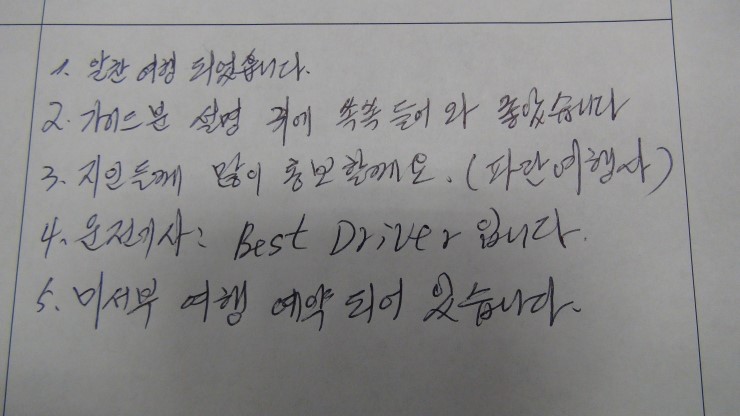 1. 알찬 여행 되었습니다.
2. 가이드분 설명 귀에 쏙쏙 들어 와 좋았습니다
3. 지인들께 많이 홍보할께요. (파란여행사)
4. 운전기사: Best Driver 입니다.
5. 미서부 여행 예약 되어 있습니다.